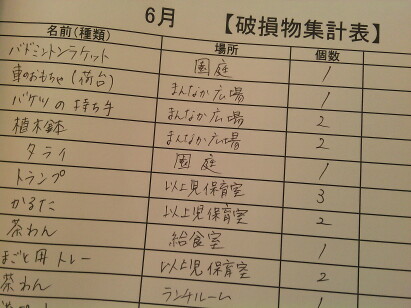 6月 【破損物集計表】
名前(種類) 場所 個数
バドミントンラケット 園庭 1
車のおもちゃ(荷台) まんなか広場 1
バケツの持ち手 まんなか広場 2
植木鉢 まんなか広場 2
タライ 園庭 1
トランプ 以上児保育室 3
かるた 以上児保育室 2
茶わん 給食室 1
まごと用トレー 以上児保育室 2
茶わん ランチルーム